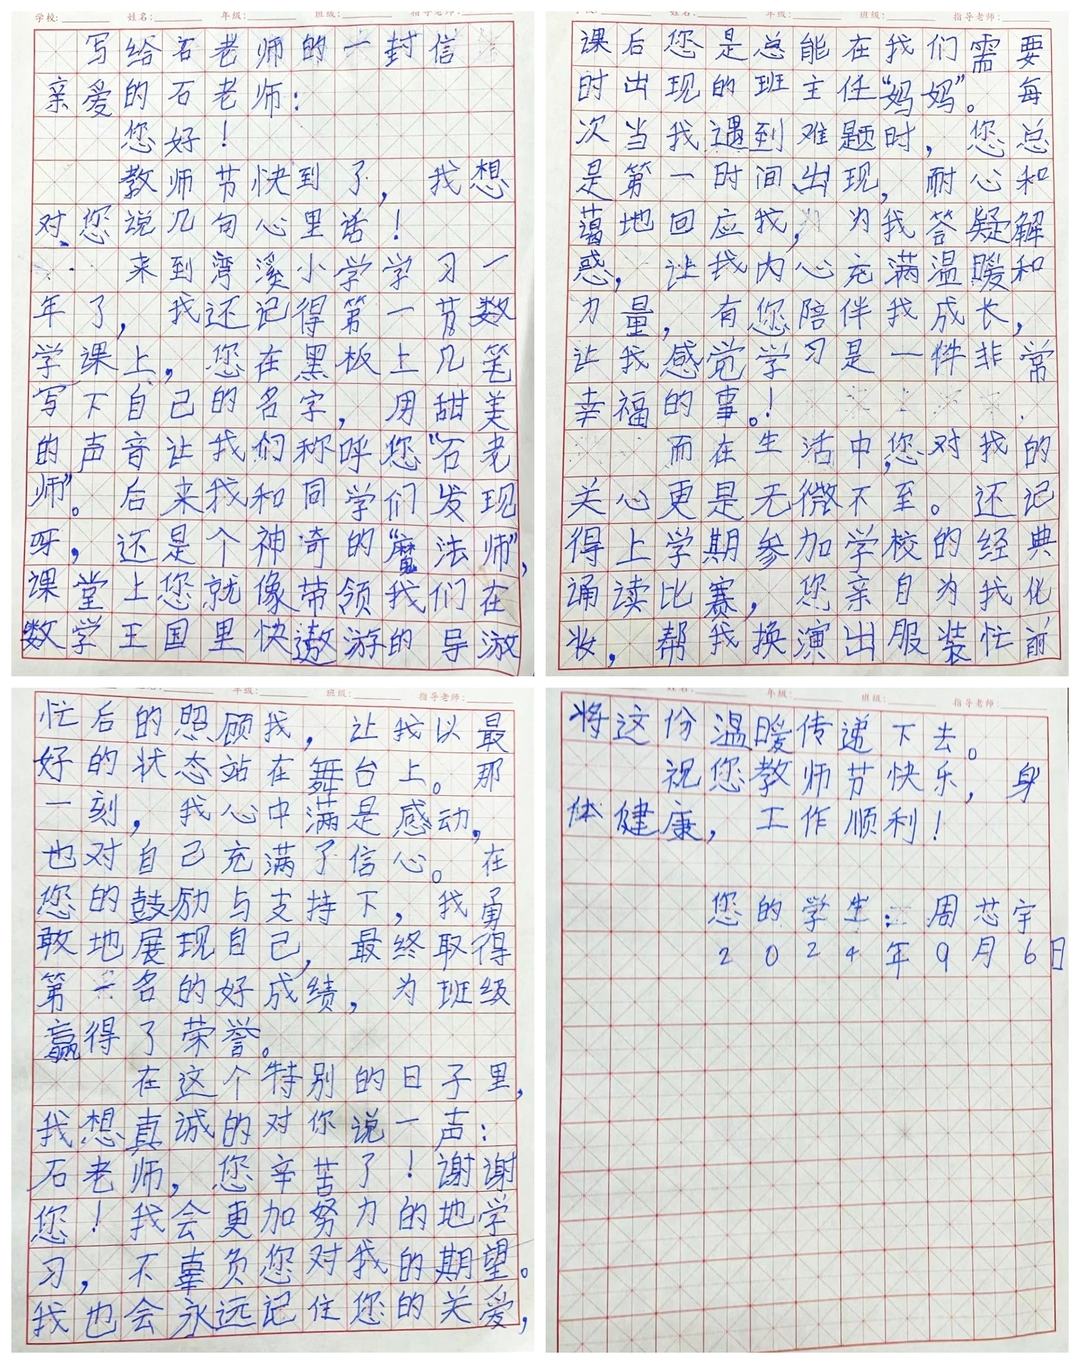 学校: 姓名: 年级: 班级: 指导老师:
写给石老师的一封信
亲爱的石老师:
您好!
教师节快到了,我想
对您说几句心里话!
来到湾溪小学学习一
年了,我还记得第一节数
学课上,您在黑板上几笔
写下自己的名字,用甜美
的声音让我们称呼您“石老
师”。后来我和同学们发现
呀,还是个神奇的“魔法师”,
课堂上您就像带领我们在
数学王国里快遨游的导游
姓名: 年级: 班级: 指导老师:
课后您是总能在我们需要
时出现的班主任“妈妈”。每
次当我遇到难题时,您总
是第一时间出现,耐心和
蔼地回应我,为我答疑解
惑,让我内心充满温暖和
力量,有您陪伴我成长,
让我感觉学习是一件非常
幸福的事。!
而在生活中,您对我的
关心更是无微不至。还记
得上学期参加学校的经典
诵读比赛,您亲自为我化
妆,帮我换演出服装忙前
年级: 班级: 指导老师:
忙后的照顾我,让我以最
好的状态站在舞台上。那
一刻,我心中满是感动,
也对自己充满了信心。在
您的鼓励与支持下,我勇
敢地展现自己,最终取得
第一名的好成绩,为班级
赢得了荣誉。
在这个特别的日子里,
我想真诚的对你说一声:
石老师,您辛苦了!谢谢
您!我会更加努力的地学
习,不辜负您对我的期望。
我也会永远记住您的关爱,
姓名: 年级: 班级: 指导老师:
将这份温暖传递下去。
祝您教师节快乐,身
体健康,工作顺利!
您的学生:周芯宇
2024年9月6日